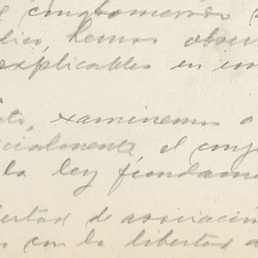 l conglomerado
dico, hemos obser
explicables en
to, examinemos a
cialmente, el conj
la ley fundam
bertad de asociación
con la libertad d